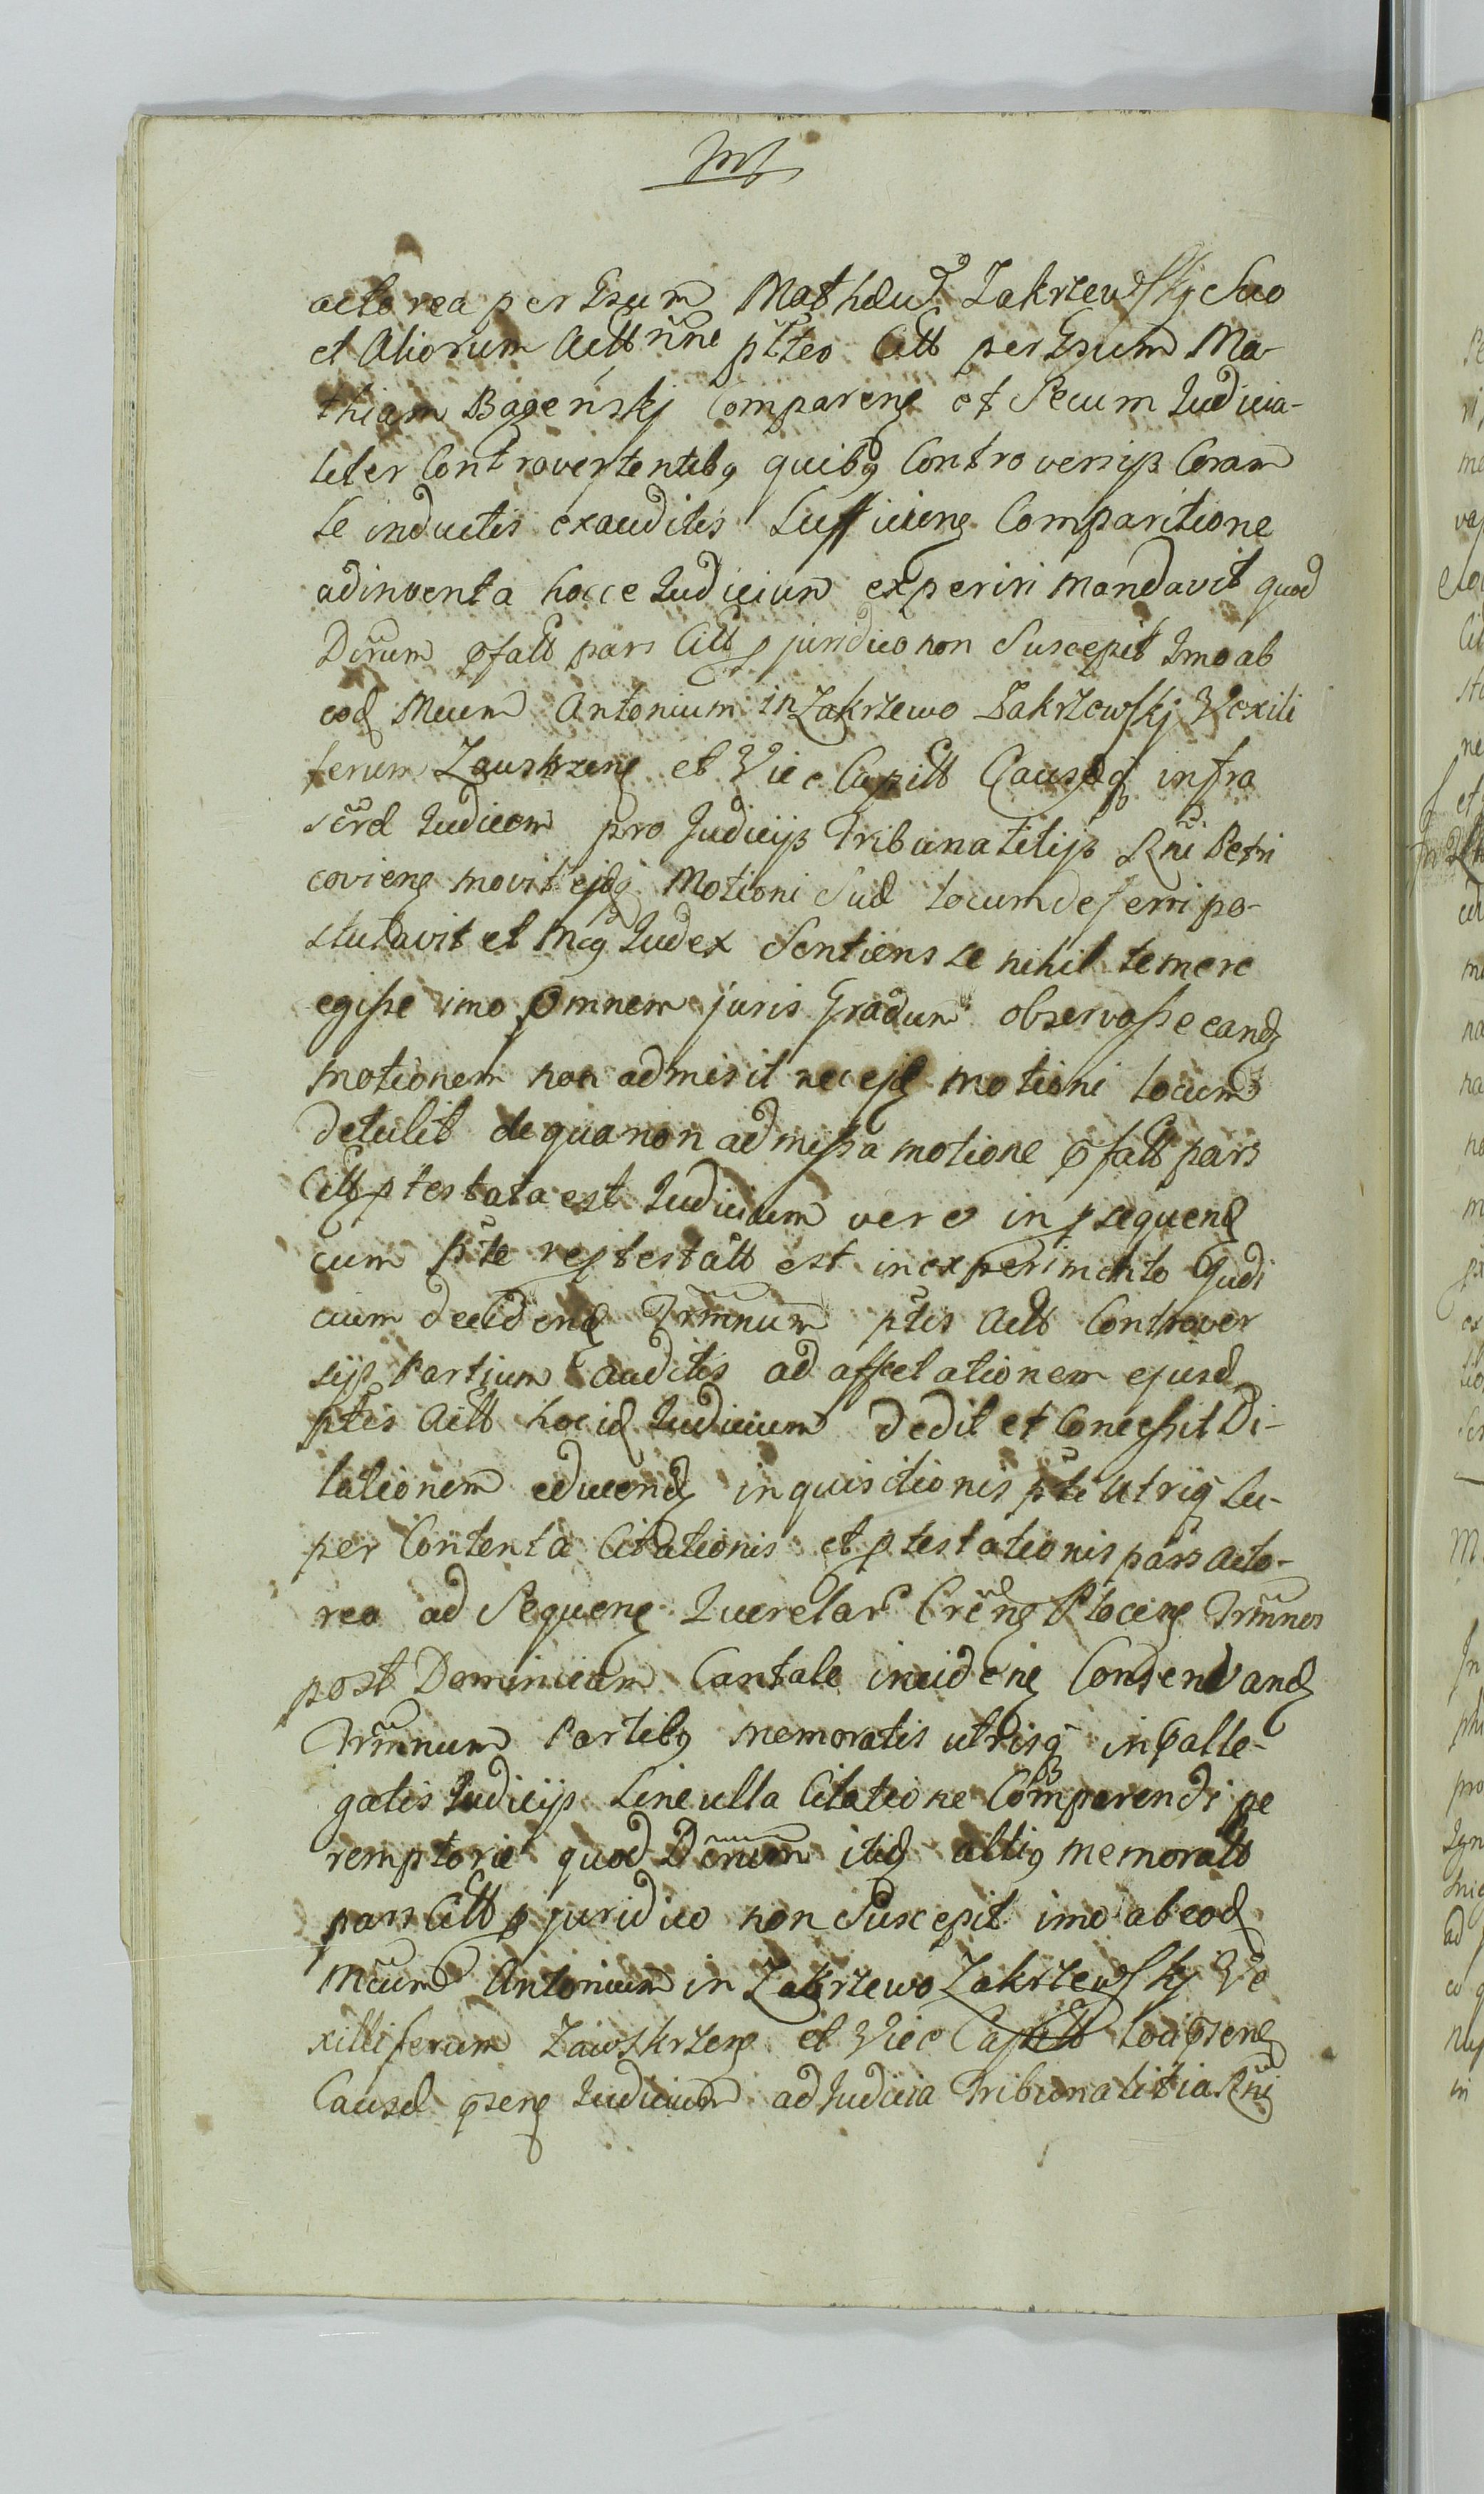 actorea per Gsum Mathæum Zakrzewskj Suo
et Aliorum Actt nne ptteo Citt per Gsum Ma-
thiam Bagenskj Comparenę et Secum Judicia-
liter Controvertentibg quibg Controversijs Coram
se inductis exauditis Sufficienę Comparitione
adinventa hocce Judicium experiri mandavit quod
Dnum pfatt pars Citt p juridico non Suscepit Imo ab
eod Mcum Antonium in Zakrzewo Zakrzewskj Vexili
ferum Zauskrzenę et Vice Capitt Causæq infra
scrt Judicem pro Judicijs Tribunalitijs Rni Petri
covienę movit ejdq Motioni Suæ locum deferri po-
stulavit et Mcg Judex Sentiens se nihil temere
egisse imo Omnem juris Gradum observasse eand
motionem non admisit nec ejd motioni locum
detulit de qua non admissa motione pfatt pars
Citt ptestata est Judicium vero in psequend
cum pte reptestatt est in experimento Judi
cium decidend Trmnum ptis Actt Controver
sijs Partium auditis ad affectationem ejusd
ptis Actt hoc id Judicium dedit et Concessit Di-
lationem educend inquisitionis pte Utriq Su-
per Contenta Citationis et ptestationis pars acto-
rea ad Sequenę Querelar Crenę Plocenę Trmnos
post Dominicam Cantate incidenę Conservand
Trmnum Partibg memoratis utrisq in palle-
gatis Judicijs Sine ulla Citatione Comparendi pe
remptorie quod Dnum itid altig memoratt
pars Citt p juridico non Suscepit imo ab eod
Mcum Antonium in Zakrzewo Zakrzewskj Ve
xilliferum Zawskrzenę et Vice Capitt Loci psenę
Causæ psenę Judicium ad Judicia Tribunalitia Rni